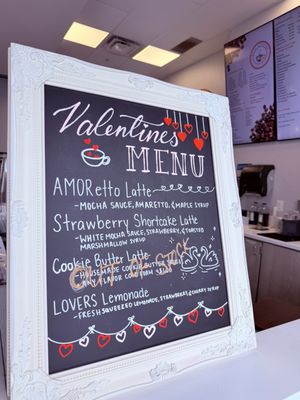 Valentines
MENU
AMORetto Latte
- MOCHA SAUCE, AMARETTO, & MAPLE SYRUP
Strawberry Shortcake Latte
- WHITE MOCHA SAUCE, STRAWBERRY, & TOASTED
MARSHMALLOW SYRUP
Cookie Butter Latte
- HOUSEMADE COOKIE BUTTER
ANY FLAVOR COLD FOAM
OUT OF STOCK
LOVERS Lemonade
- FRESH SQUEEZED LEMONADE, STRAWBERRY, & CHERRY SYRUP